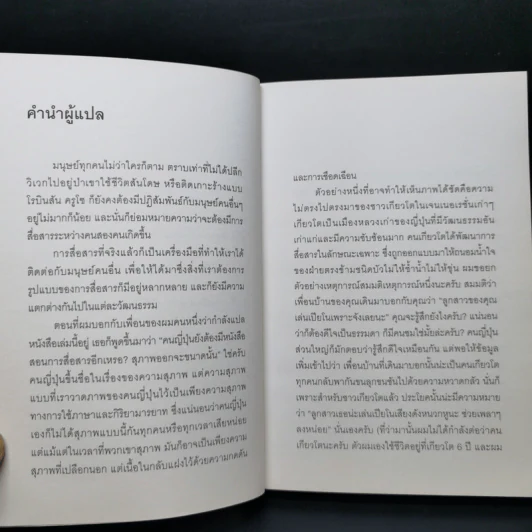 คำนำผู้แปล
มนุษย์ทุกคนไม่ว่าใครก็ตาม ตราบเท่าที่ไม่ได้ปลีก
วิเวกไปอยู่ป่าเขาใช้ชีวิตสันโดษ หรือติดเกาะร้างแบบ
โรบินสัน ครูโซ ก็ยังคงต้องมีปฏิสัมพันธ์กับมนุษย์คนอื่นๆ
อยู่ไม่มากก็น้อย และนั่นก็ย่อมหมายความว่าจะต้องมีการ
สื่อสารระหว่างคนสองคนเกิดขึ้น
การสื่อสารที่จริงแล้วก็เป็นเครื่องมือที่ทำให้เราได้
ติดต่อกับมนุษย์คนอื่น เพื่อให้ได้มาซึ่งสิ่งที่เราต้องการ
รูปแบบของการสื่อสารก็มีอยู่หลากหลาย และก็ยังมีความ
แตกต่างกันไปในแต่ละวัฒนธรรม
ตอนที่ผมบอกกับเพื่อนของผมคนหนึ่งว่ากำลังแปล
หนังสือเล่มนี้อยู่ เธอก็พูดขึ้นมาว่า "คนญี่ปุ่นยังต้องมีหนังสือ
สอนการสื่อสารอีกเหรอ? สุภาพออกจะขนาดนั้น" ใช่ครับ
คนญี่ปุ่นขึ้นชื่อในเรื่องของความสุภาพ แต่ความสุภาพ
แบบที่เราวาดภาพของคนญี่ปุ่นไว้เป็นเพียงความสุภาพ
ทางการใช้ภาษาและกิริยามารยาท ซึ่งแน่นอนว่าคนญี่ปุ่น
เองก็ไม่ได้สุภาพแบบนี้กันทุกคนหรือทุกเวลาเสียหน่อย
แต่แม้แต่ในเวลาที่พวกเขาสุภาพ มันก็อาจเป็นเพียงความ
สุภาพที่เปลือกนอก แต่เนื้อในกลับแฝงไว้ด้วยความกดดัน
และการเชือดเฉือน
ตัวอย่างหนึ่งที่อาจทำให้เห็นภาพได้ชัดคือความ
ไม่ตรงไปตรงมาของชาวเกียวโตในเจนเนอเรชั่นเก่าๆ
เกียวโตเป็นเมืองหลวงเก่าของญี่ปุ่นที่มีวัฒนธรรมอัน
เก่าแก่และมีความซับซ้อนมาก คนเกียวโตได้พัฒนาการ
สื่อสารในลักษณะเฉพาะ ซึ่งถูกออกแบบมาให้ถนอมน้ำใจ
ของฝ่ายตรงข้ามชนิดบัวไม่ให้ช้ำน้ำไม่ให้ขุ่น ผมขอยก
ตัวอย่างเหตุการณ์สมมติเหตุการณ์หนึ่งนะครับ สมมติว่า
เพื่อนบ้านของคุณเดินมาบอกกับคุณว่า "ลูกสาวของคุณ
เล่นเปียโนเพราะจังเลยนะ" คุณจะรู้สึกยังไงครับ? แน่นอน
ว่าก็ต้องดีใจเป็นธรรมดา ก็มีคนชมใช่มั้ยล่ะครับ? คนญี่ปุ่น
ส่วนใหญ่ก็มักตอบว่ารู้สึกดีใจเหมือนกัน แต่พอให้ข้อมูล
เพิ่มเข้าไปว่า เพื่อนบ้านที่เดินมาบอกนั้นน่ะเป็นคนเกียวโต
ทุกคนกลับพากันขนลุกขนชันไปด้วยความหวาดกลัว นั่นก็
เพราะสำหรับชาวเกียวโตแล้ว ประโยคนั้นน่ะมีความหมาย
ว่า "ลูกสาวเธอน่ะเล่นเปียโนเสียงดังหนวกหูนะ ช่วยเพลาๆ
ลงหน่อย" นั่นเองครับ (ที่ว่ามานั้นผมไม่ได้กำลังต่อว่าคน
เกียวโตนะครับ ตัวผมเองใช้ชีวิตอยู่ที่เกียวโต 6 ปี และผม